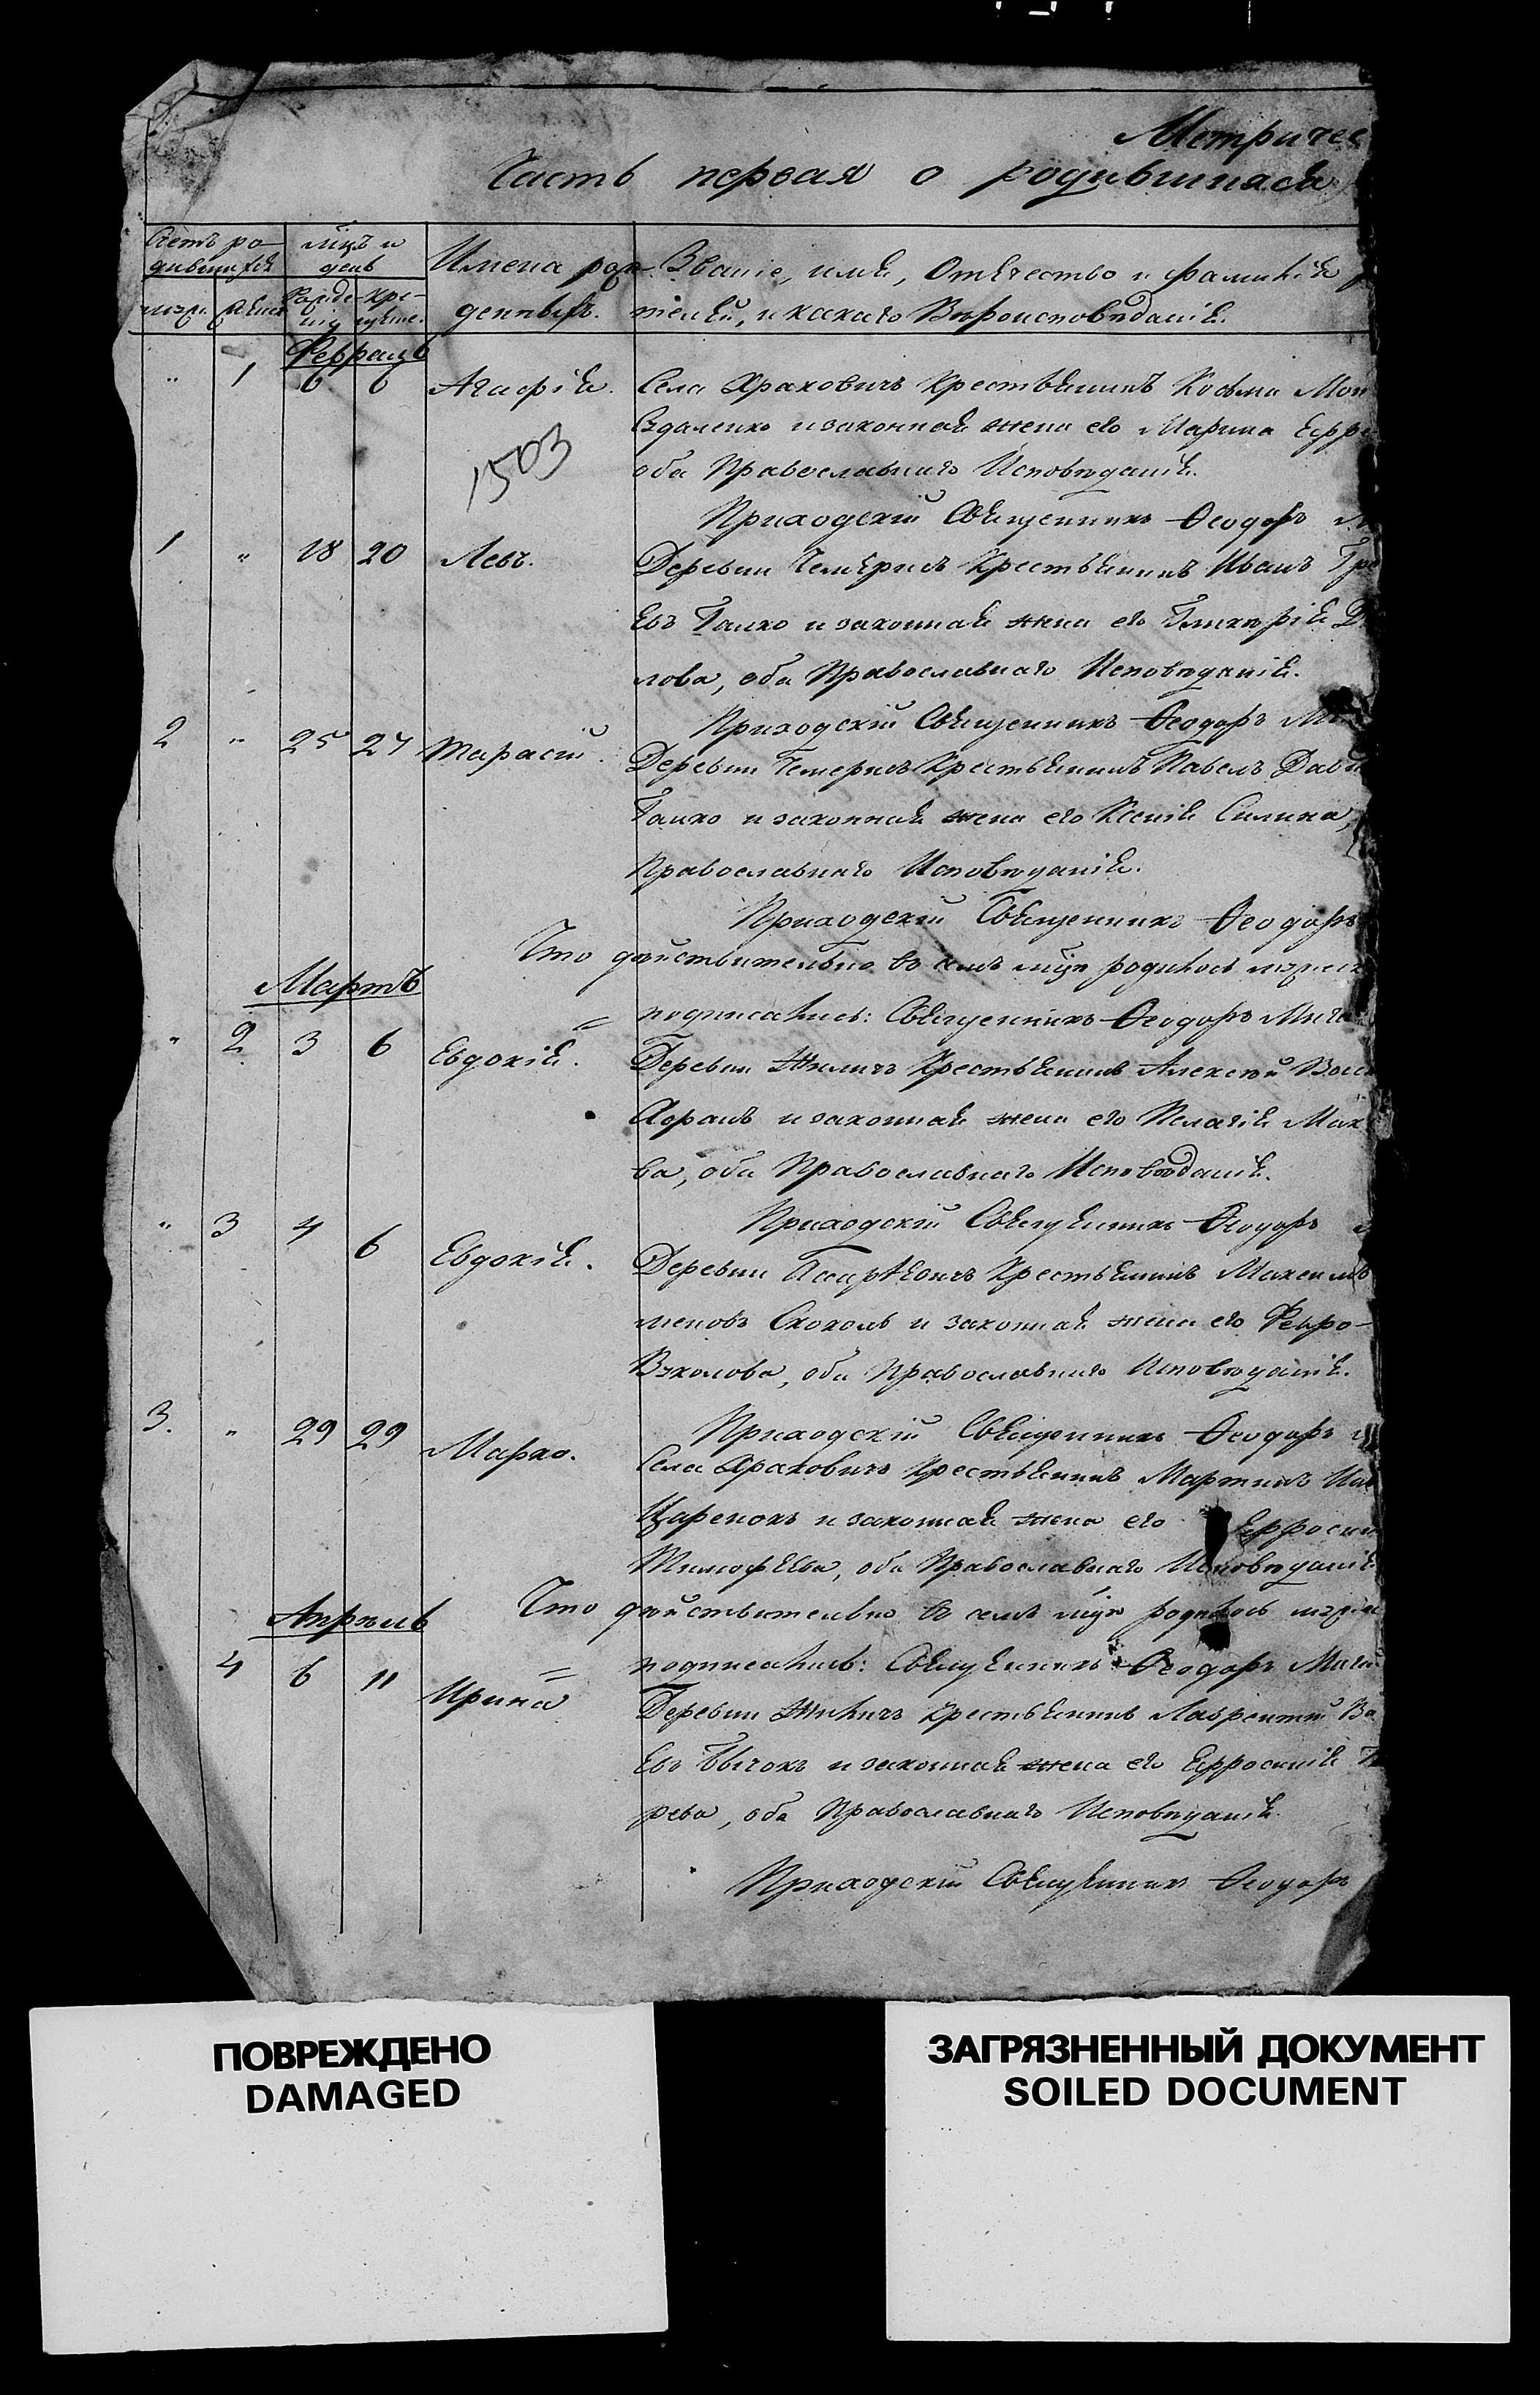 Метричес
Часть первая о родившихся
Счетъ ро-
дившихся
мцъ и
день
Имена рож-
денныхъ.
Званіе, имя, Отечество и фамилія р
телей, и какаго Вѣроисповѣданія.
муж. женск
Рожде-
нія
Кре-
щене.
Февраль
" 1 6 6 Агафія. Села Храковичъ Крестьянинъ Косьма
и законная жена его Марина Ефр
оба Православнаго Исповѣданія.
1503
Приходскій Священникъ Ѳеодоръ М
1 " 18 20 Левъ. Деревни Чемерисъ Крестьянинъ Иванъ Гр
евъ Галко и законная жена его Гликерія Д
лова, оба Православнаго Исповѣданія.
Приходскій Священникъ Ѳеодоръ М
2 " 25 27 Тарасій. Деревни Чемерисъ Крестьянинъ Павелъ Дави
Галко и законная жена его Ксенія Силина,
Православнаго Исповѣданія.
Приходскій Священникъ Ѳеодоръ
Что дѣйствительно въ семъ мцѣ родилось мужеск
Мартъ
подписались: Священникъ Ѳеодоръ Мига
" 2 3 6 Евдокія. Деревни Жиличъ Крестьянинъ Алексѣй Васи
и законная жена его Пелагія Мак
ва, оба Православнаго Исповѣданія.
Приходскій Священникъ Ѳеодоръ
" 3 4 6 Евдокія. Деревни Крестьянинъ Максимъ
меновъ Скокль и законная жена его Февро-
Вуколова, оба Православнаго Исповѣданія.
Приходскій Священникъ Ѳеодоръ
3. " 29 29 Марко. Села Храковичъ Крестьянинъ Мартинъ Ив
Царенокъ и законная жена его Ефросин
Тимофеева, оба Православнаго Исповѣданія
Что дѣйствительно въ семъ мцѣ родилось муж
Апрѣль
подписались: Священникъ Ѳеодоръ Мига
4 6 11 Ирина Деревни Жиличъ Крестьянинъ Лаврентій Ва
евъ Бычокъ и законная жена его Ефросинія
рева, оба Православнаго Исповѣданія.
Приходскій Священникъ Ѳеодоръ
ПОВРЕЖДЕНО
DAMAGED
ЗАГРЯЗНЕННЫЙ ДОКУМЕНТ
SOILED DOCUMENT